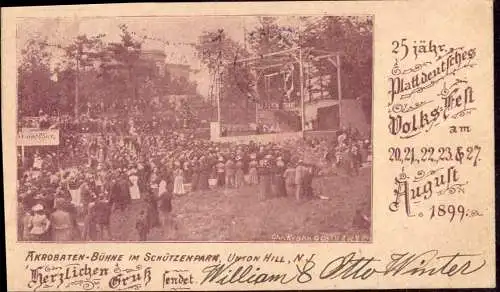 25 jähr.
Plattdeutsches
Volks-Fest
am
20, 21, 22, 23, & 27.
August
1899.
AKROBATEN-BÜHNE IM SCHÜTZENPARK, UNION HILL, N.
Herzlichen Gruß sendet William & Otto Winter